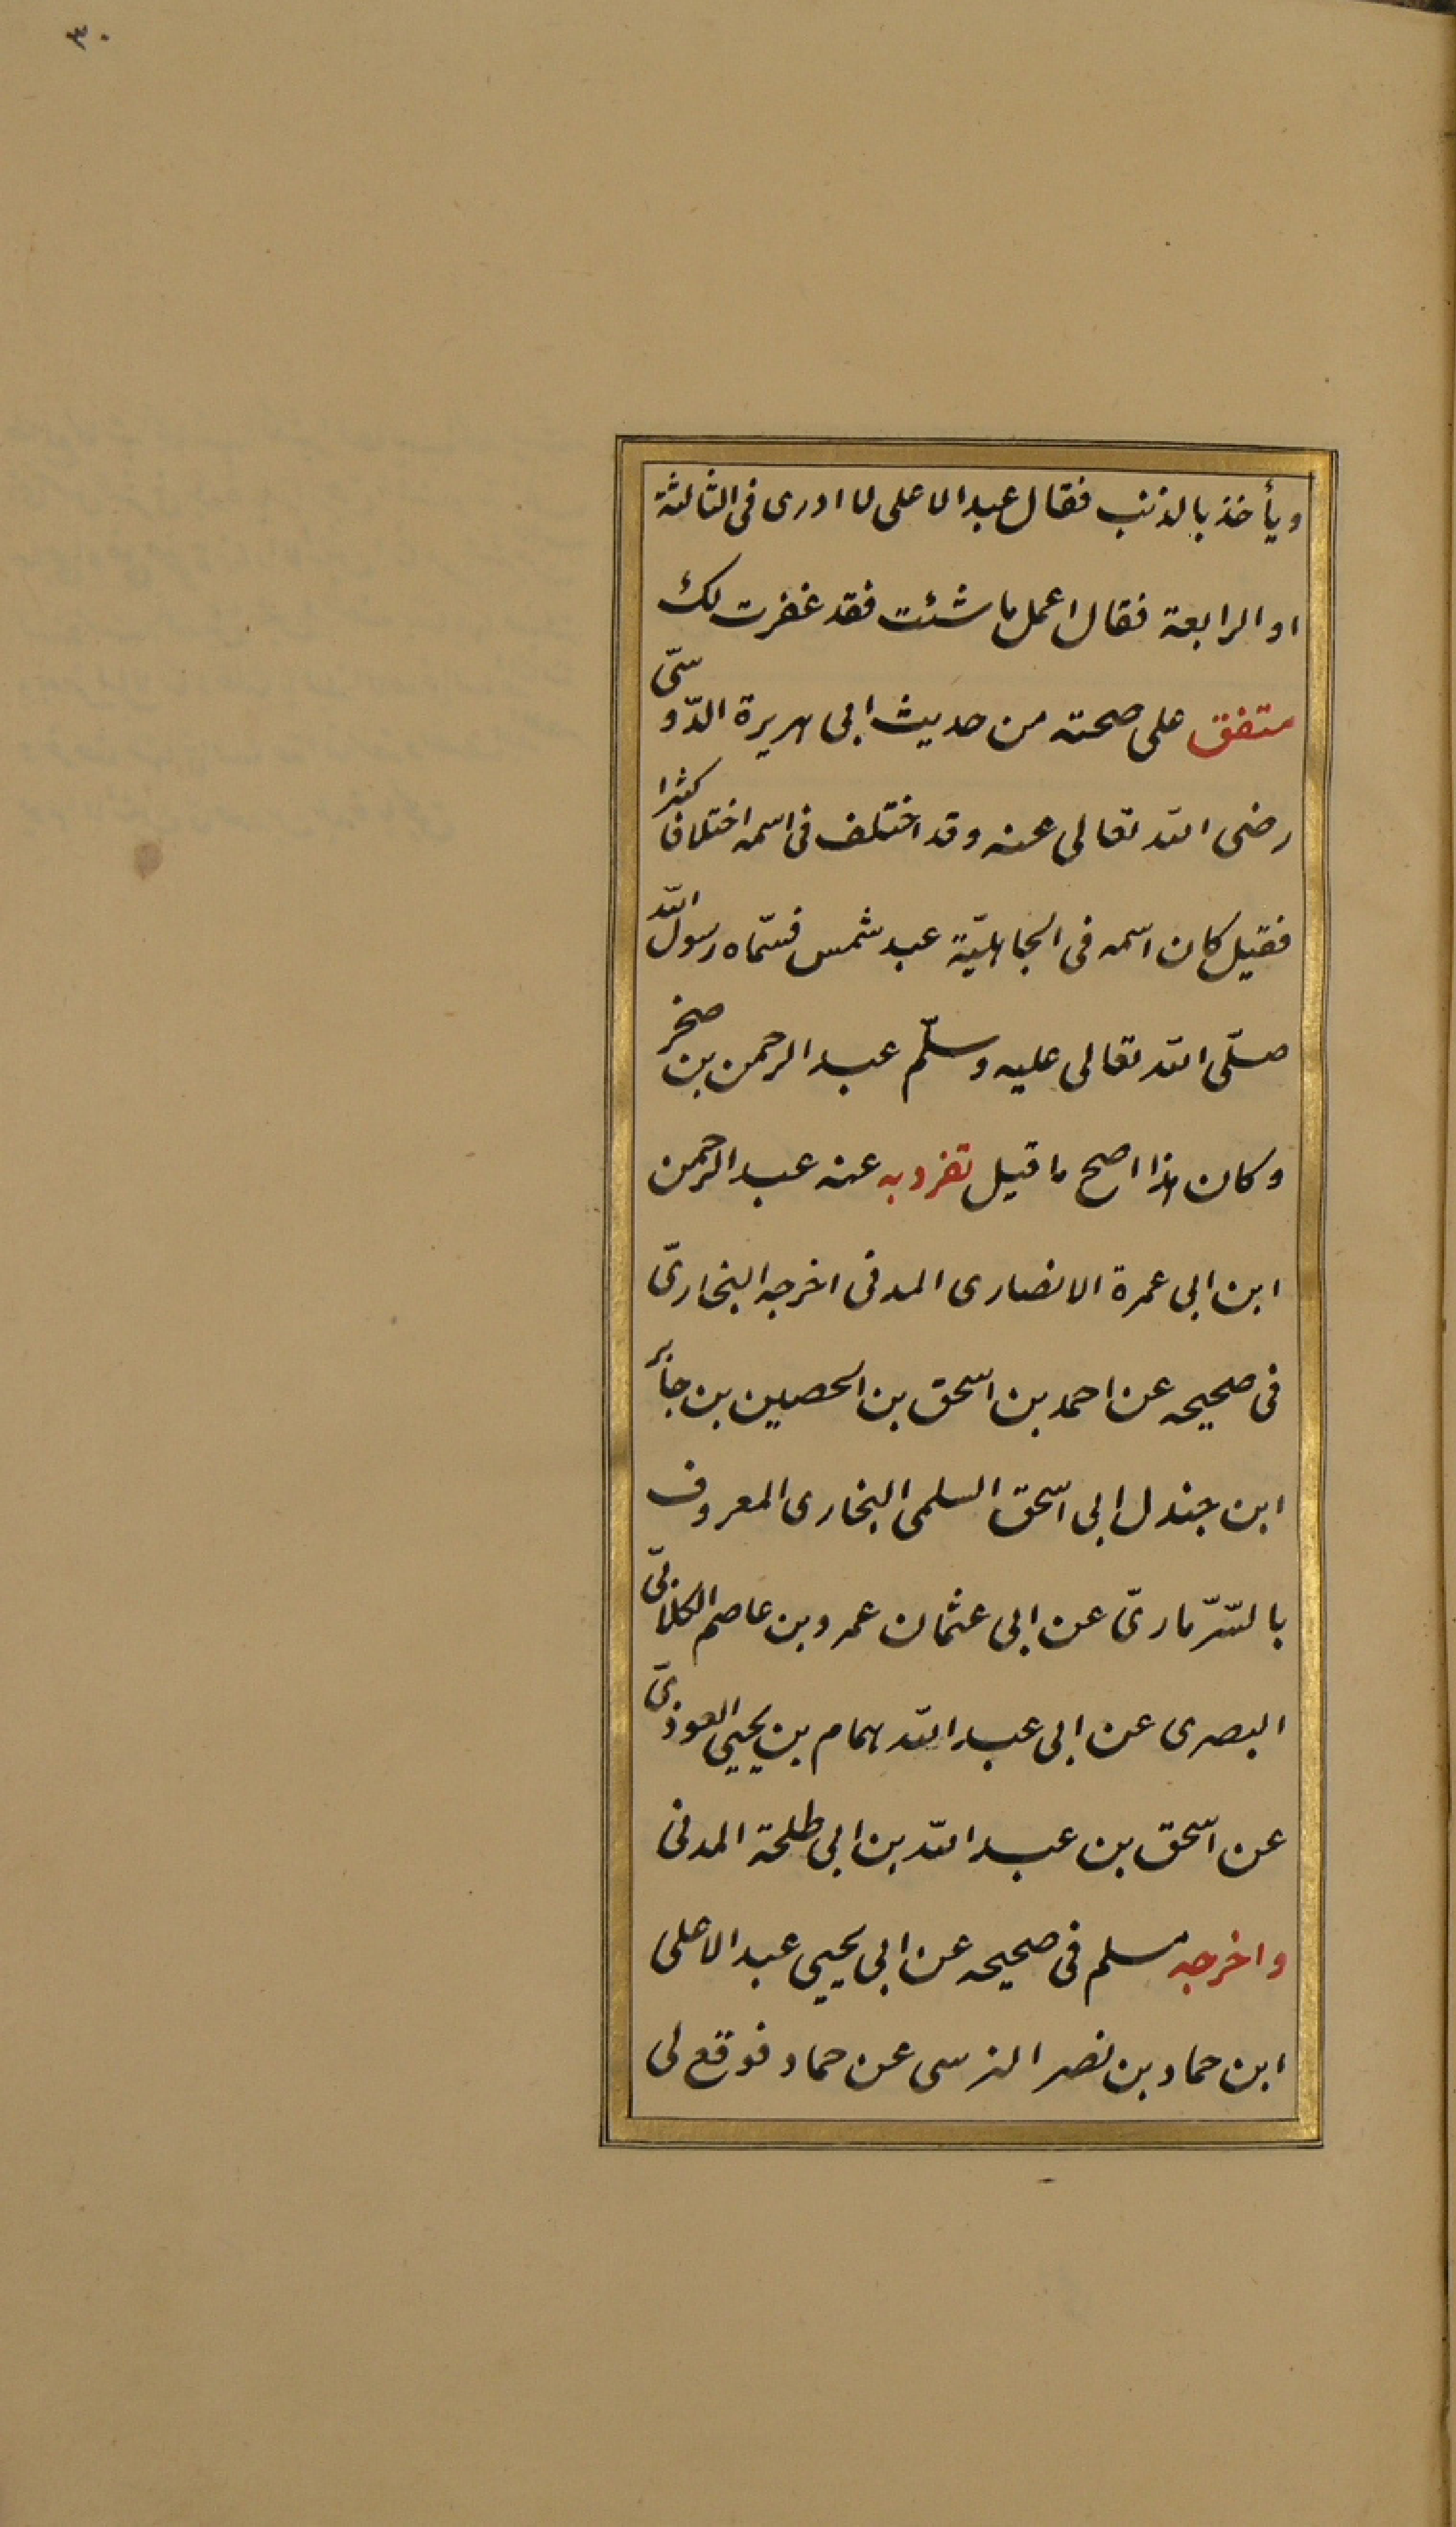 ٣٠
ويأخذ بالذنب فقال عبد الاعلى لا ادرى فى الثالثة
او الرابعة فقال اعمل ما شئت فقد غفرت لك
متفق على صحته من حديث ابى هريرة الدّوسىّ
رضى الله تعالى عنه وقد اختلف فى اسمه اختلافا كثيرا
فقيل كان اسمه فى الجاهليّة عبد شمس فسمّاه رسول الله
صلّى الله تعالى عليه وسلّم عبد الرحمن بن صخر
وكان هذا اصح ما قيل تفرد به عنه عبد الرحمن
ابن ابى عمرة الانصارى المدنى اخرجه البخارىّ
فى صحيحه عن احمد بن اسحق بن الحصين بن جابر
ابن جندل ابى اسحق السلمى البخارى المعروف
بالسّرّمارىّ عن ابى عثمان عمرو بن عاصم الكلابىّ
البصرى عن ابى عبد الله همام بن يحيى العوذىّ
عن اسحق بن عبد الله بن ابى طلحة المدنى
واخرجه مسلم فى صحيحه عن ابى يحيى عبد الاعلى
ابن حماد بن نصر النرسى عن حماد فوقع لى